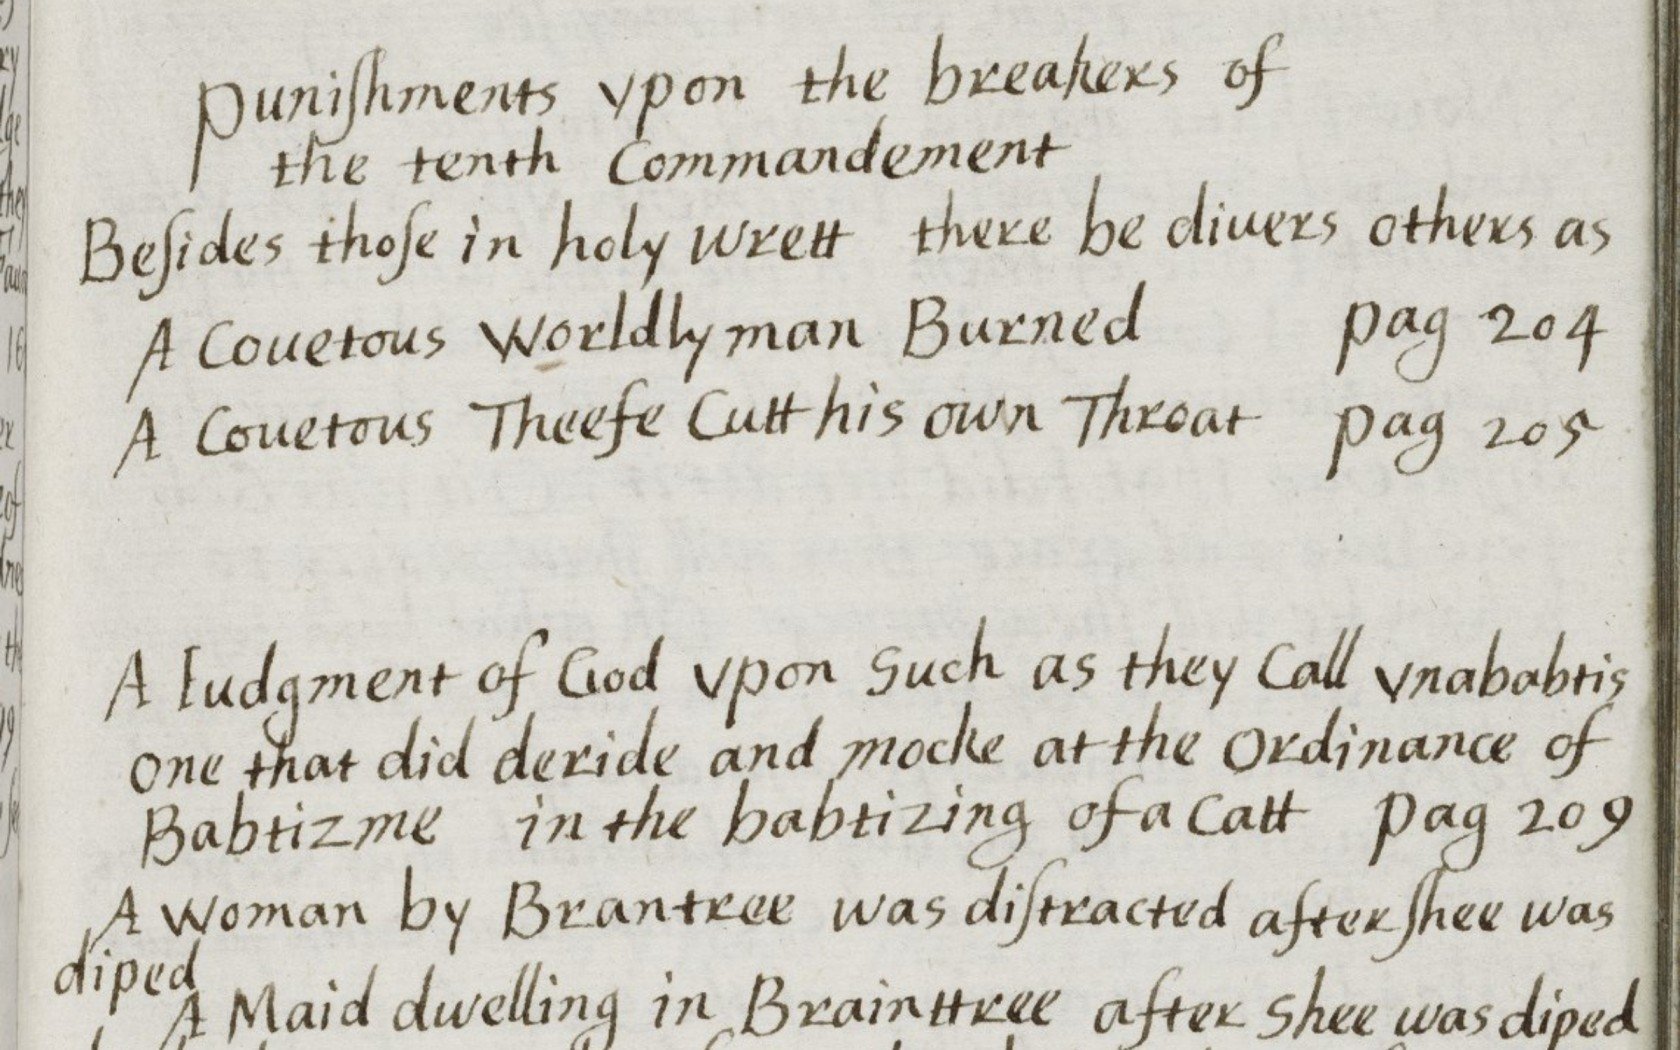 Puniſhments vpon the breakers of
the tenth Commandement
Beſides thoſe in holy wrett there be diuers others as
A Couetous Worldly man Burned pag 204
A Couetous Theefe Cutt his own Throat pag 205
A Iudgment of God vpon Such as they Call vnababtis
one that did deride and mocke at the Ordinance of
Babtizme in the babtizing of a Catt pag 209
A woman by Brantree was diſtracted after ſhee was
diped
A Maid dwelling in Brainttree after Shee was diped